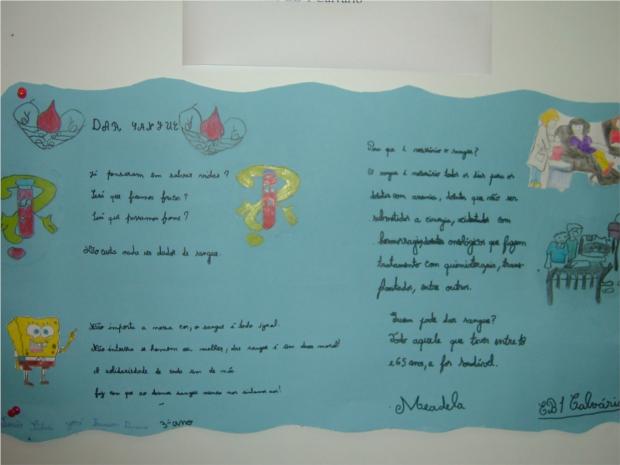 EB 1 Calvário
DAR SANGUE
Já pensaram em salvar vidas?
Será que ficamos fracos?
Será que passamos fome?
Não custa nada ser dador de sangue.
Não importa a nossa cor, o sangue é todo igual.
Não interessa se homem ou mulher, dar sangue é um dever moral!
A solidariedade de cada um de nós
faz com que ao darmos sangue nunca nos sintamos sós!
3º ano
Para que é necessário o sangue?
O sangue é necessário todos os dias para os
doentes com anemia, doentes que vão ser
submetidos a cirurgia, acidentados com
hemorragias, doentes oncológicos que fazem
tratamento com quimioterapia, trans-
plantados, entre outros.
Quem pode dar sangue?
Todo aquele que tiver entre 18
e 65 anos, e for saudável.
Meadela
EB1 Calvário